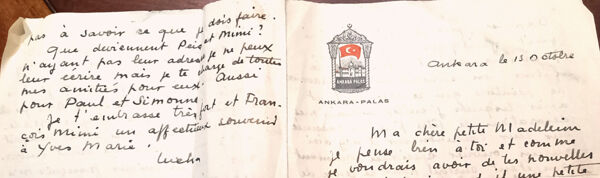 pas à savoir ce que je dois faire.
Que deviennent et Mimi?
n'ayant pas leur adresse je ne peux
leur écrire mais je te charge de toutes
mes amitiés pour eux. Aussi
pour Paul et Simonne
Je t'embrasse très fort et Fran-
çois Mimi un affectueux souvenir
à Yves Marie.
ANKARA PALAS
ANKARA-PALAS
Ankara le 13 Octobre
Ma chère petite Madeleine
je pense bien à toi et comme
je voudrais avoir de tes nouvelles
il une petite